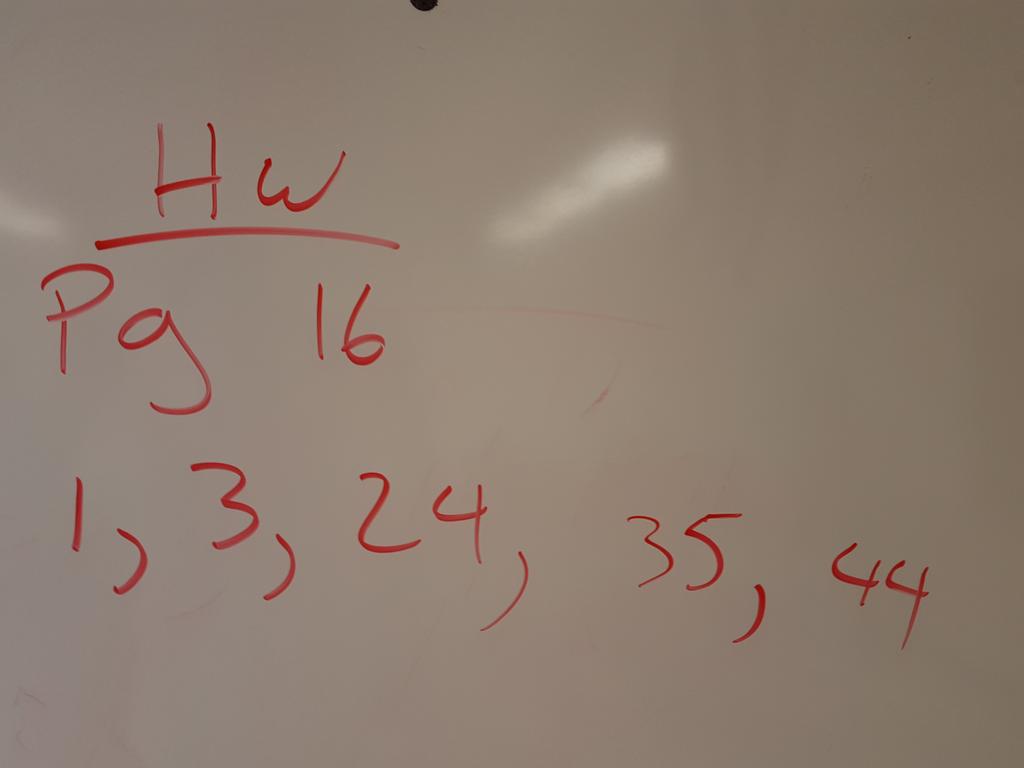 Hw
Pg 16
1, 3, 24, 35, 44